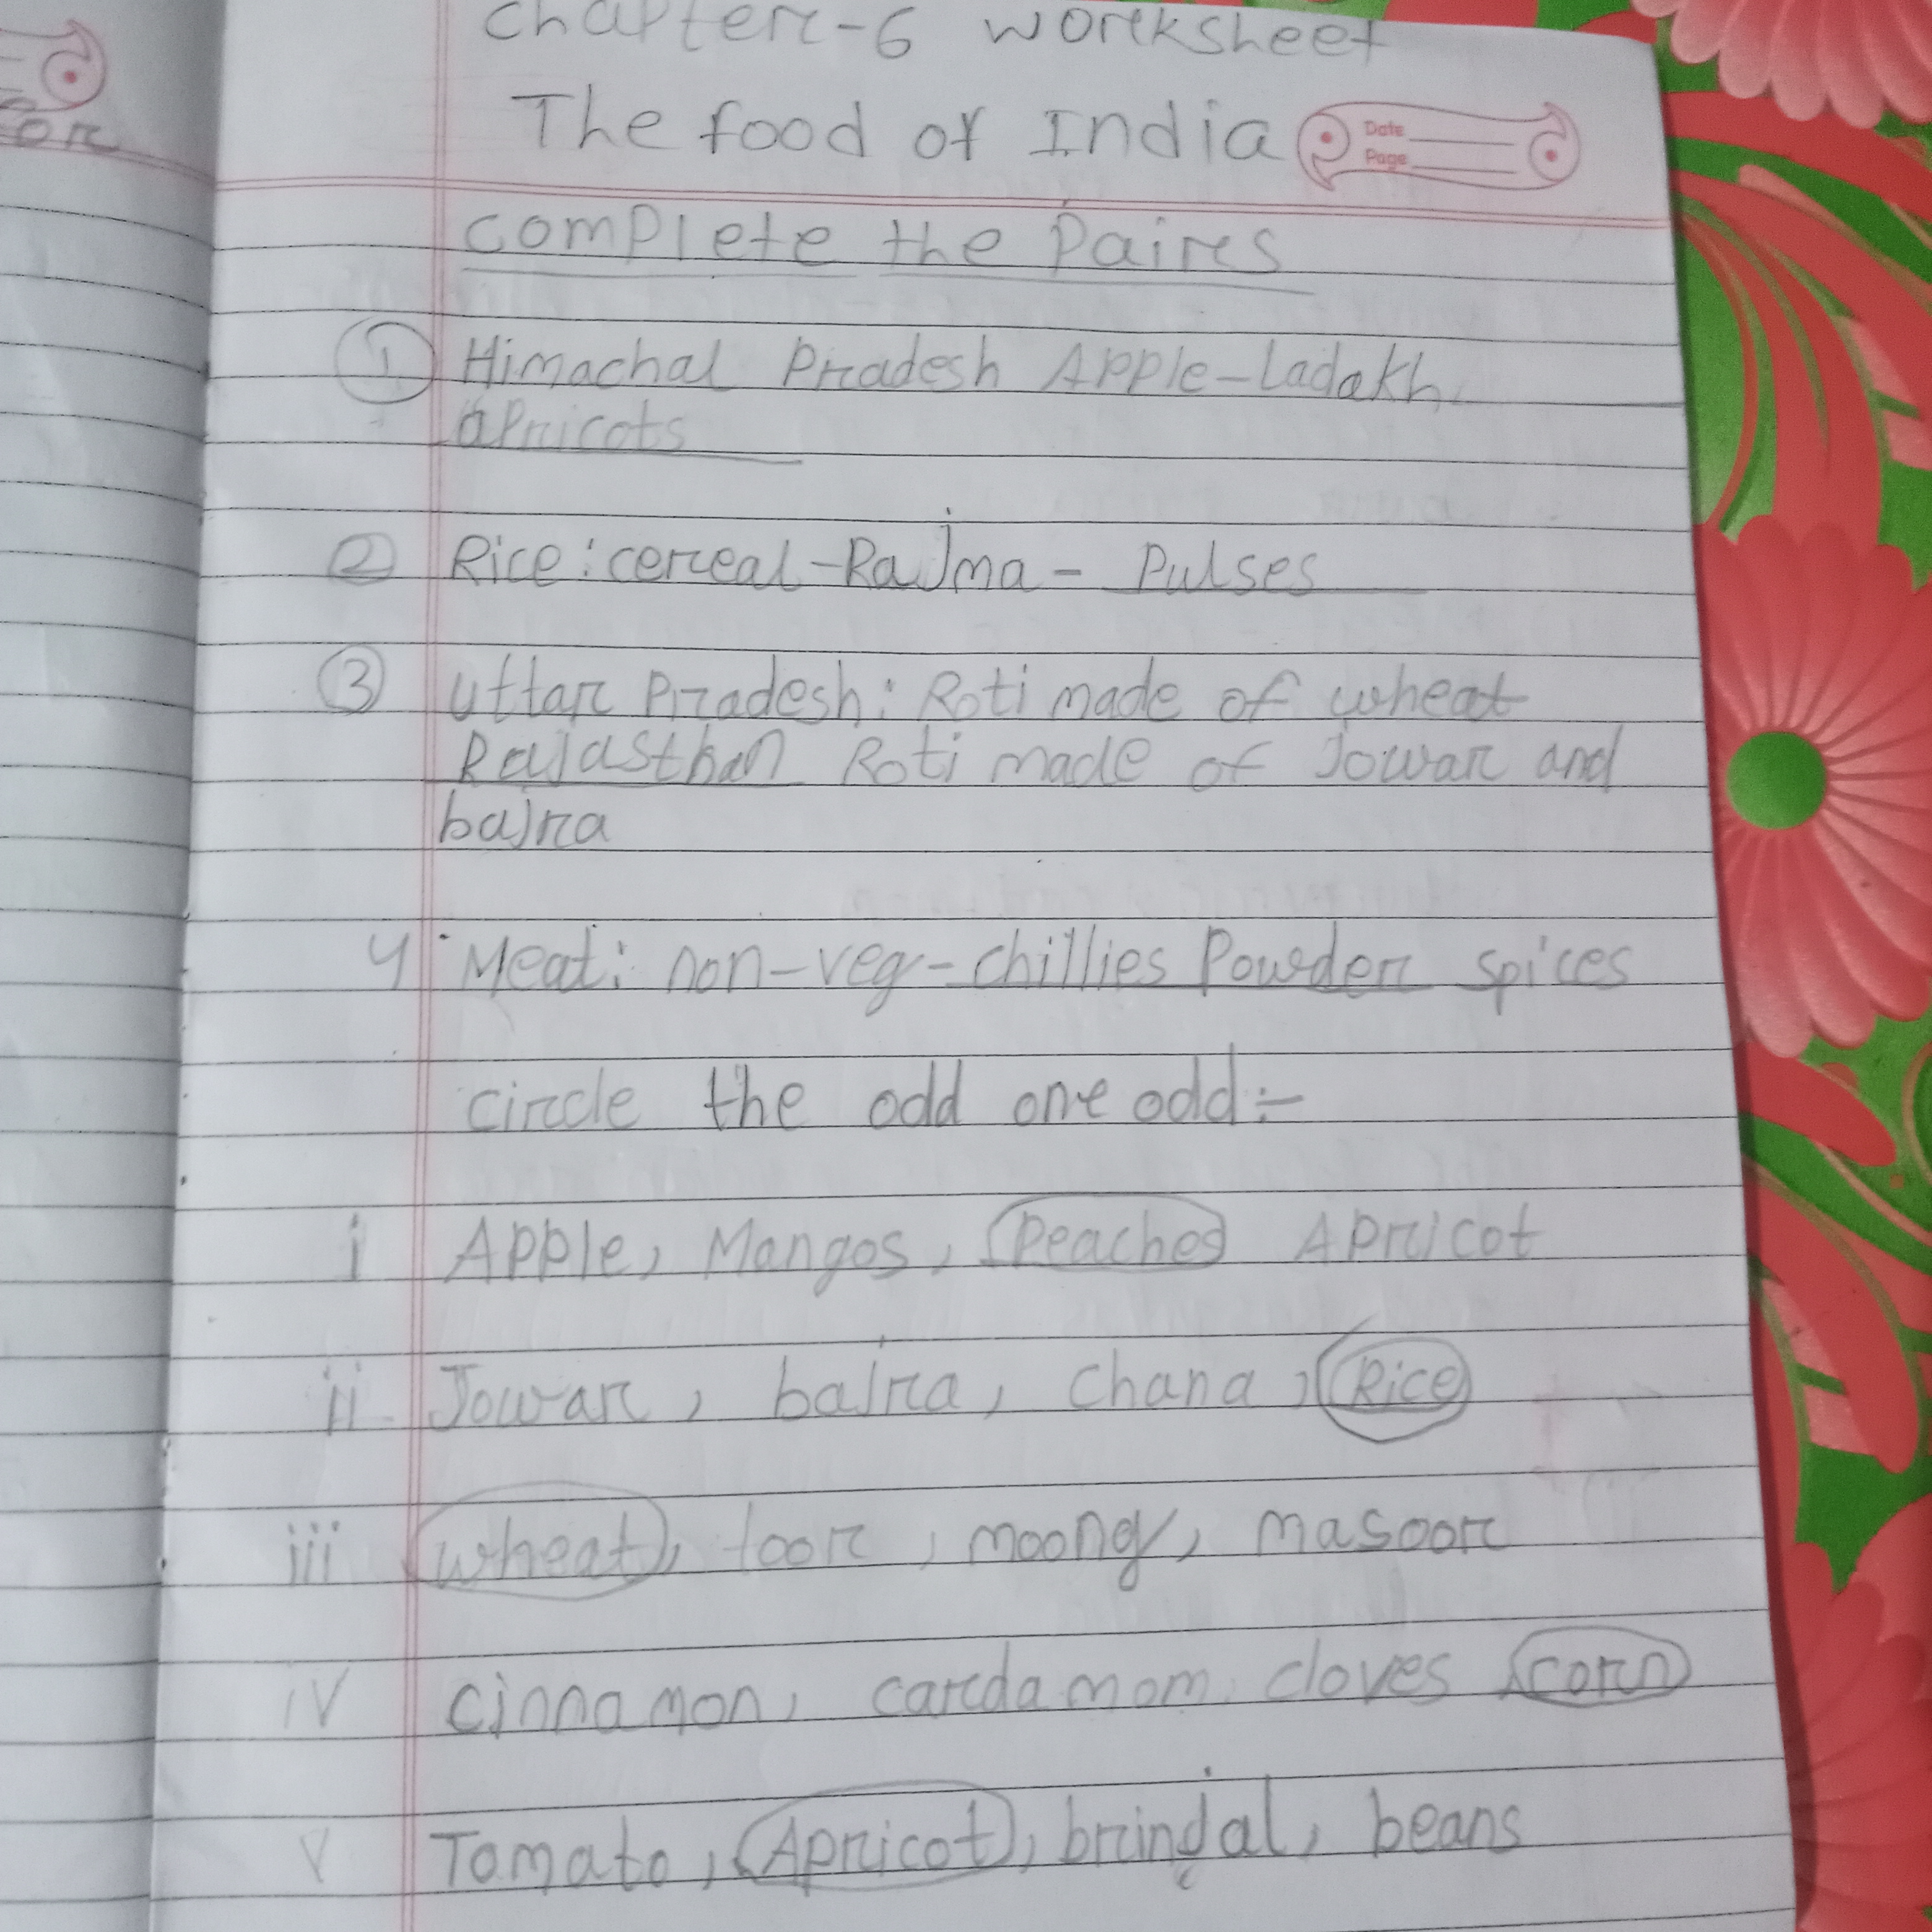 Chapter-6 worksheet
The food of India
Date
Page
complete the Paires
1 Himachal Pradesh Apple-Ladakh
apricots
2 Rice: cereal-Rajma - Pulses
3 Uttar Pradesh: Roti made of wheat
Rajasthan Roti made of Jowar and
bajra
4 Meat: non-veg-chillies Powder spices
circle the odd one odd:-
i Apple, Mangos, Peaches Apricot
ii Jowar, bajra, chana, Rice
iii wheat, toor, moong, masoor
iv cinnamon, cardamom, cloves corn
v Tomato, Apricot, brinjal, beans